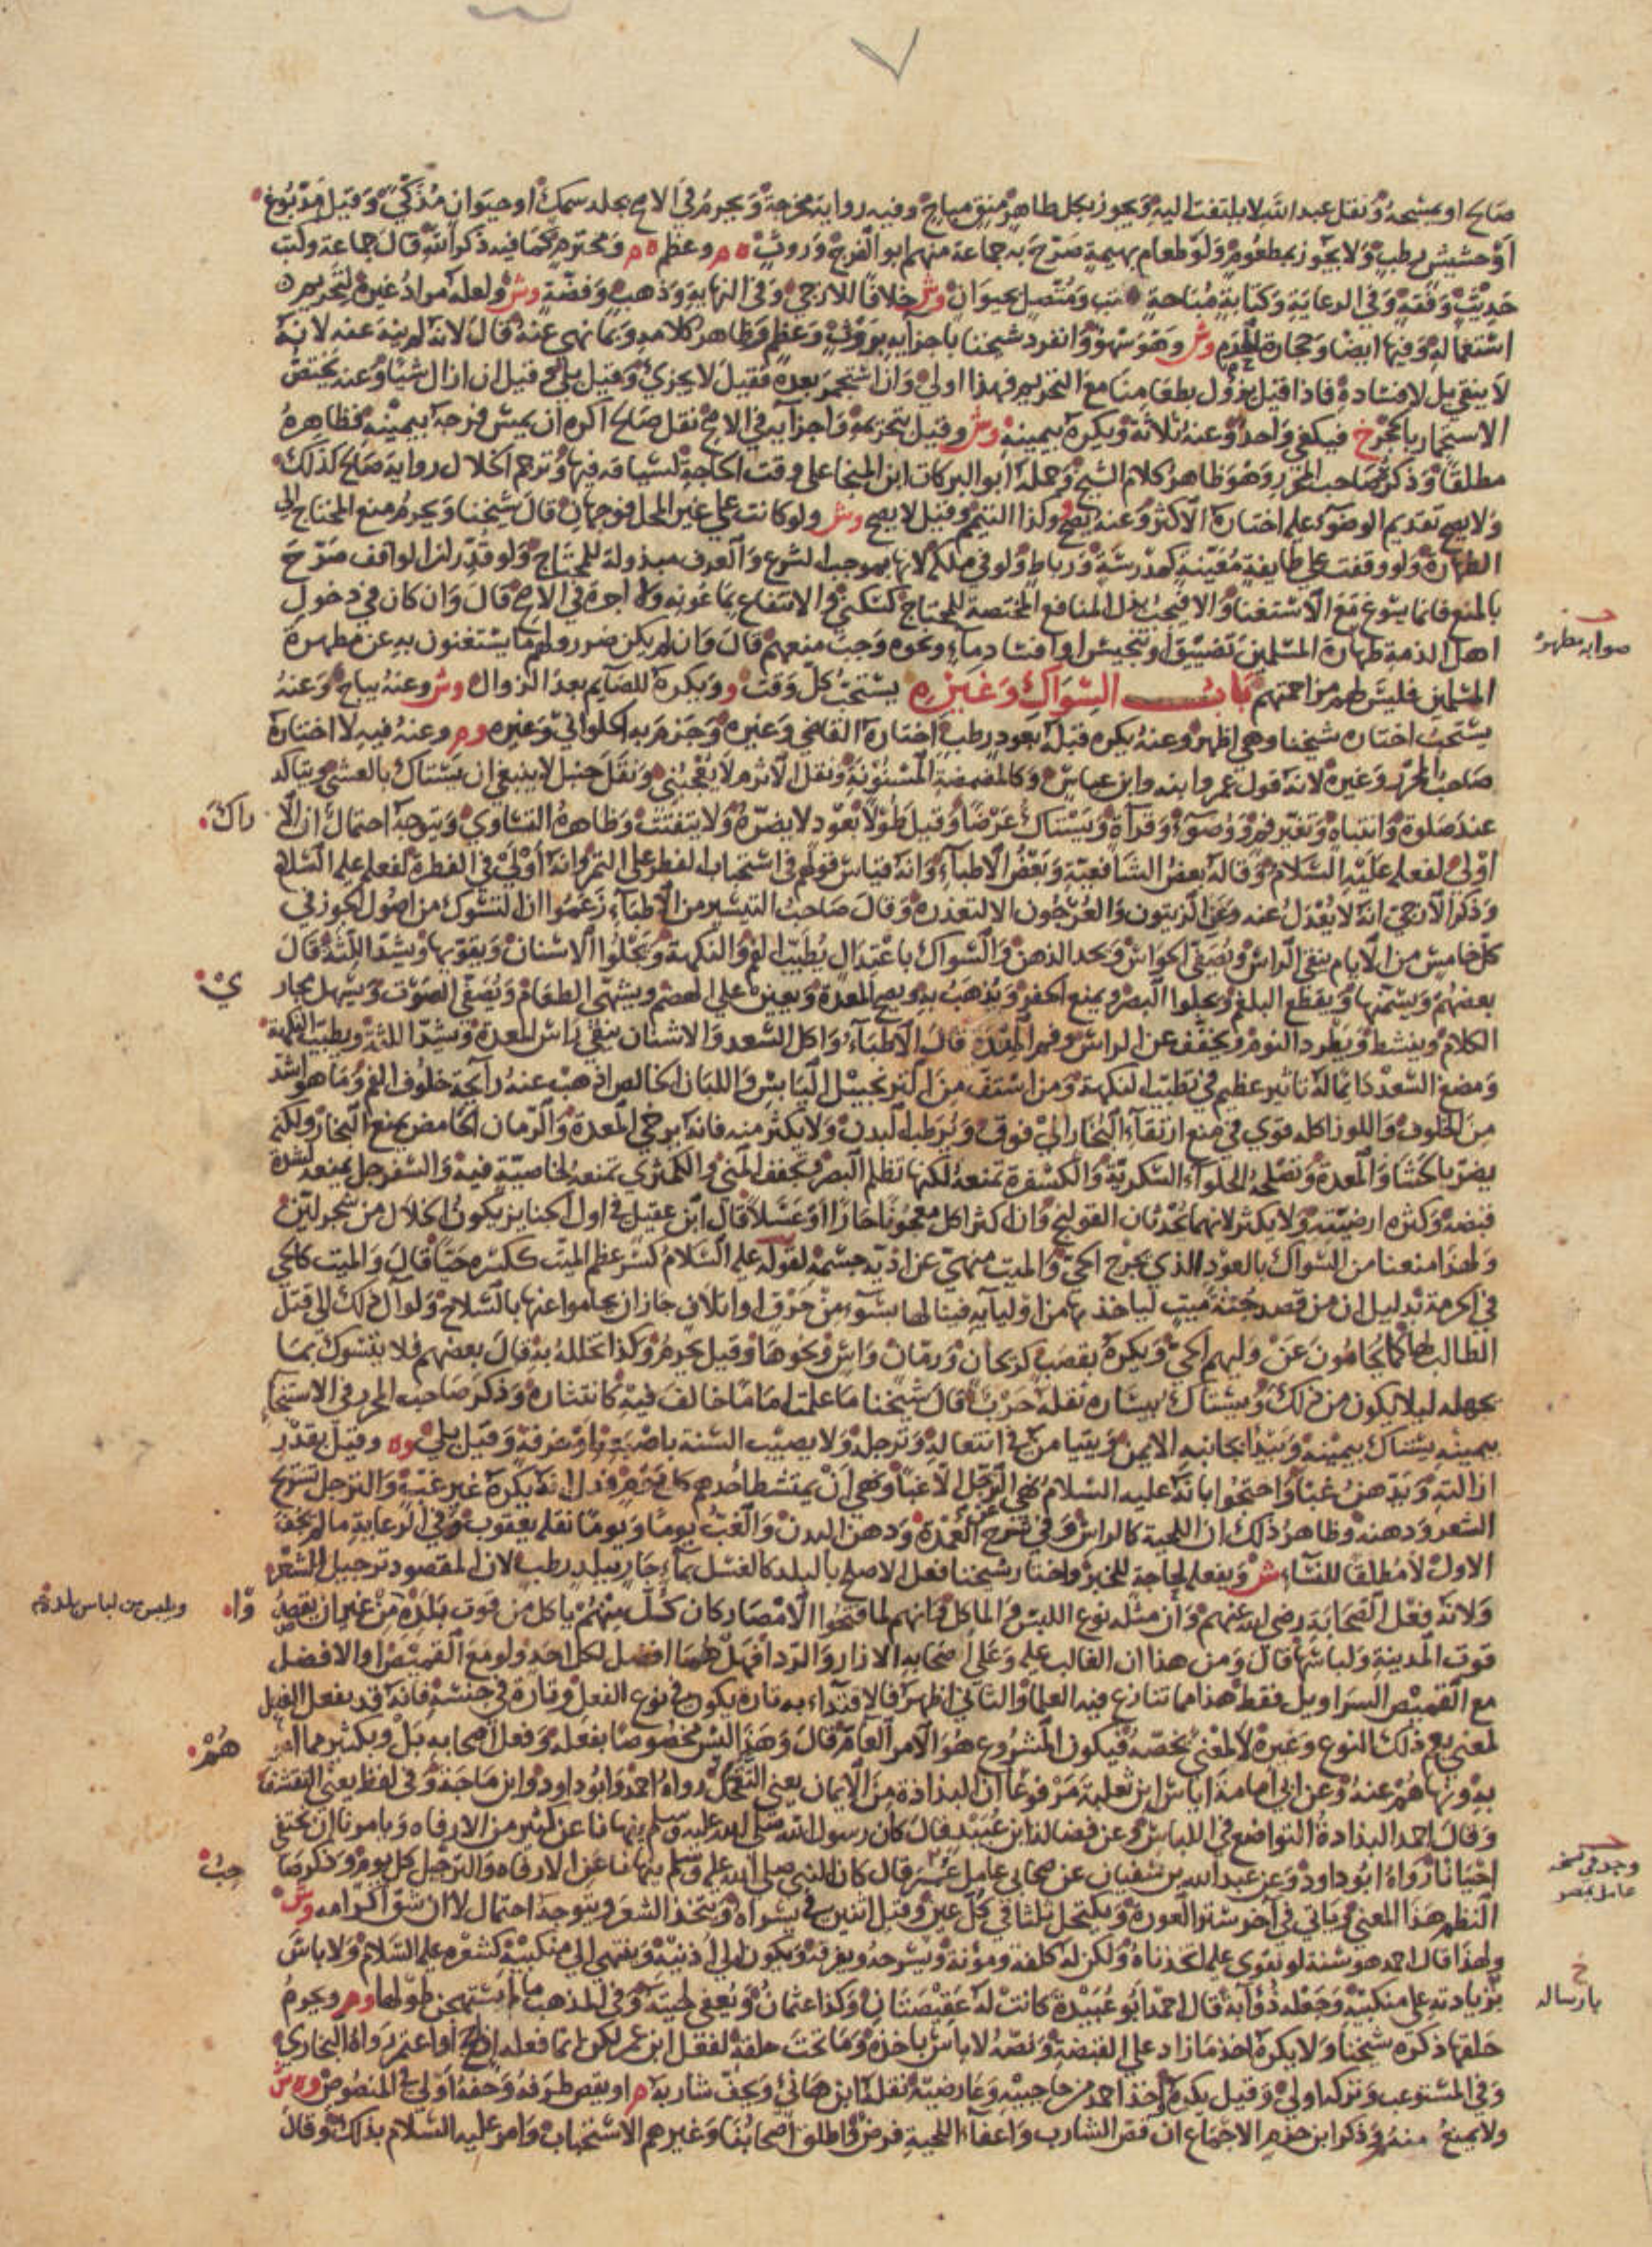 صالح او يمسحه ونقل عبد الله لا يلتفت اليه ويجوز بكل طاهر منق مباح وفيه رواية مخرجة ويحرم في الاصح بجلد سمك او حيوان مذكي وقيل مدبوغ
او حشيش رطب ولا يجوز بمطعوم ولو طعام بهيمة صرح به جماعة منهم ابو الفرج وروث ه م وعظم ه م ومحترم كما فيه ذكر الله قال جماعة وكتب
حديث وفقه وفي الرعاية وكتابة مباحة ومتصل بحيوان وش خلافا للازجي وفي النهاية وذهب وفضة وش ولعله مراد غيره لتحريم
استعماله وفيها ايضا وحجارة الحرم وش وهو سهو وانفرد شيخنا باجزايه بروث وعظم وظاهر كلامه وبما نهي عنه قال لانه لم ينه عنه لانه
لا ينقي بل لافساده فاذا قيل يزول بطعامنا مع التحريم فهذا اولي وان استجمر بعده فقيل لا يجزي وقيل بلي وقيل ان ازال شيا وعنه يختص
الاستجمار بالحجر خ فيكفي واحد وعنه ثلاثة ويكره بيمينه وش وقيل بتحريمه واجزايه في الاصح نقل صالح اكره ان يمس فرجه بيمينه فظاهره
مطلقا وذكره صاحب المحرر وهو ظاهر كلام الشيخ وحمله ابو البركات ابن المنجا على وقت الحاجة لسياقه فيها وترجم الخلال رواية صالح كذلك
ولا يصح تقديم الوضو عليه اختاره الاكثر وعنه يصح وكذا التيمم وقيل لا يصح وش ولو كانت على غير المحل فوجهان قال شيخنا ويحرم منع المحتاج الي
الطهارة ولو وقفت على طايفة معينة كمدرسة ورباط ولو في ملكه لانها بموجب الشرع والعرف مبذولة للمحتاج ولو قدر ان الواقف صرح
بالمنع فانما يسوغ مع الاستغنا والا فيجب بذل المنافع المختصة للمحتاج كسكني والانتفاع بماعونه ولا اجرة في الاصح قال وان كان في دخول
اهل الذمة طهارة المسلمين تضييق او تنجيس او افساد ماء ونحوه وجب منعهم قال وان لم يكن ضرر ولهم ما يستغنون به عن مطهرة
صوابه مطهرة
المسلمين فليس لهم مزاحمتهم باب السواك وغيره يستحب كل وقت و ويكره للصايم بعد الزوال وش وعنه يباح وعنه
يستحب اختاره شيخنا وهي اظهر وعنه يكره قبله بعود رطب اختاره القاضي وغيره وجزم به الحلواني وغيره وم وعنه فيه لا اختاره
صاحب المحرر وغيره لانه قول عمر وابنه وابن عباس وكالمضمضة المسنونة ونقل الاثرم لا يعجبني ونقل حنبل لا ينبغي ان يستاك بالعشي ويتاكد
عند صلوة وانتباه وتغير فم ووضوء وقراة ويستاك عرضا وقيل طولا بعود لا يضره ولا يتفتت وظاهره التساوي ويتوجه احتمال ان الا
راك
اولى لفعله عليه السلام وقاله بعض الشافعية وبعض الاطباء وانه قياس قولهم في استحباب الفطر على التمر وانه اولى في الفطرة لفعله عليه السلام
وذكر الازجي انه لا يعدل عنه وعن الزيتون والعرجون الا لتعذره وقال صاحب التيسير من الاطباء زعموا ان التسوك من اصول الجوز في
كل خامس من الايام ينقي الراس ويصفي الحواس ويحد الذهن والسواك باعتدال يطيب الفم والنكهة ويجلوا الاسنان ويقويها ويشد اللثة قال
بعضهم ويسمنها ويقطع البلغم ويجلوا البصر ويمنع الحفر ويذهب به ويصح المعدة ويعين على الهضم ويشهي الطعام ويصفي الصوت ويسهل مجار
ي
الكلام وينشط ويطرد النوم ويخفف عن الراس وفم المعدة قال الاطباء واكل السعد والاشنان ينقي راس المعدة ويشد اللثة ويطيب النكهة
ومضغ السعد دايما له تاثير عظيم في تطييب النكهة ومن استف من الزنجبيل اليابس واللبان الخالص اذهب عنه رايحة خلوف الفم وما هو اشد
من الخلوف واللوز اكله قوي في منع ارتقاء البخار الي فوق ويرطب البدن ولا يكثر منه فانه يرخي المعدة والرمان الحامض يمنع البخار ولكنه
يضر بالحشا والمعدة وتصلحه الحلواء السكرية والكسفرة تمنعه لكنها تظلم البصر وتجفف المني والكمثري تمنعه لخاصية فيه والسفرجل يمنعه لشدة
قبضه وكثره ارضيته ولا يكثر لانهما يحدثان القولنج وان اكثر اكل معجونا حارا او عسلا قال ابن عقيل في اول الجنايز يكون الخلال من شجر لين
ولهذا منعنا من السواك بالعود الذي يجرح الحي والميت منهي عن اذية جسمه لقوله عليه السلام كسر عظم الميت ككسره حيا قال والميت كالحي
في الحرمة بدليل ان من قصد جثة ميت لياخذها من اوليايه فينالها بسوء من حرق او اتلاف جاز ان يحاموا عنها بالسلاح ولو آل ذلك الى قتل
الطالب لها كما يحامون عن وليهم الحي ويكره بقصب كريحان ورمان واس ونحوها وقيل يحرم وكذا تخلله به قال بعضهم فلا يتسوك بما
يجهله ليلا يكون من ذلك ويستاك بيساره نقله حرب قال شيخنا ما علمت اماما خالف فيه كانتثاره وذكر صاحب المحرر في الاستنجا
بيمينه يستاك بيمينه ويبدا بجانبه الايمن ويتيامن في انتعاله وترجله ولا يصيب السنة باصبعه او خرقة وقيل بلي وه وقيل بقدر
ازالته ويدهن غبا واحتجوا بانه عليه السلام نهي عن الترجل الا غبا ونهي ان يمتشط احدهم كل يوم فدل انه يكره غير غب والترجل تسريح
الشعر ودهنه وظاهر ذلك ان اللحية كالراس وفي شرح العمدة ودهن البدن والغب يوما ويوما نقله يعقوب وفي الرعاية ما لم يجف
الاول لا مطلقا للنساء ش ويفعله لحاجة للخبر واختار شيخنا فعل الاصلح بالبلد كالغسل بماء حار ببلد رطب لان المقصود ترجيل الشعر
ولانه فعل الصحابة رضي الله عنهم وان مثله نوع اللبس والماكل فانهم لما فتحوا الامصار كان كل منهم ياكل من قوت بلده من غير ان يقصد
وا
ويلبس من لباس بلده
قوت المدينة ولباسها قال ومن هذا ان الغالب عليه وعلى اصحابه الازار والردا فهل هما افضل لكل احد ولو مع القميص او الافضل
مع القميص السراويل فقط هذا مما تنازع فيه العلما والثاني اظهر فالاقتداء به تارة يكون في نوع الفعل وتارة في جنسه فانه قد يفعل الفعل
لمعني يعم ذلك النوع وغيره لا لمعني يخصه فيكون المشروع هو الامر العام قال وهذا ليس مخصوصا بفعله وفعل اصحابه بل وبكثير مما امر
هم
به ونهاهم عنه وعن ابي امامة اياس ابن ثعلبة مرفوعا ان البذاذة من الايمان يعني التقحل رواه احمد وابو داود وابن ماجة وفي لفظ يعني التقشف
وقال احمد البذاذة التواضع في اللباس وعن فضالة ابن عبيد قال كان رسول الله صلى الله عليه وسلم ينهانا عن كثير من الارفاه ويامرنا ان نحتفي
احيانا رواه ابو داود وعن عبد الله بن شفيان عن صحابي عامل قال كان النبي صلى الله عليه وسلم ينهانا عن الارفاه والترجيل كل يوم وذكر صا
حب
وجد في نسخة
عامل بمصر
النظم هذا المعني وياتي في آخر ستر العورة ويكتحل ثلثا في كل عين وقيل اثنين في يسراه ويتخذ الشعر ويتوجه احتمال لا ان شق اكرامه وش
ولهذا قال احمد هو سنة لو نقوي عليه اتخذناه ولكن له كلفة ومؤنة ويسرحه ويفرقه ويكون الي اذنيه وينتهي الي منكبيه كشعره عليه السلام ولا باس
بزيادته على منكبيه وجعله ذؤابة قال احمد ابو عبيدة كانت له عقيصتان وكذا عثمان ويعفي لحيته وفي المذهب ما لم يستهجن طولها وم ويحرم
خ
بارساله
حلقها ذكره شيخنا ولا يكره اخذ ما زاد على القبضة ونصه لا باس باخذه وما تحت حلقه لفعل ابن عمر لكن انما فعله اذا حج او اعتمر رواه البخاري
وفي المستوعب وتركه اولي وقيل يكره واخذ احمد من حاجبيه وعارضيه نقله ابن هانئ ويحف شاربه م او يقص طرفه وحفه اولى في المنصوص وه ش
ولا يمنع منه وذكر ابن حزم الاجماع ان قص الشارب واعفاء اللحية فرض واطلق اصحابنا وغيرهم الاستحباب وامر عليه السلام بذلك وقال